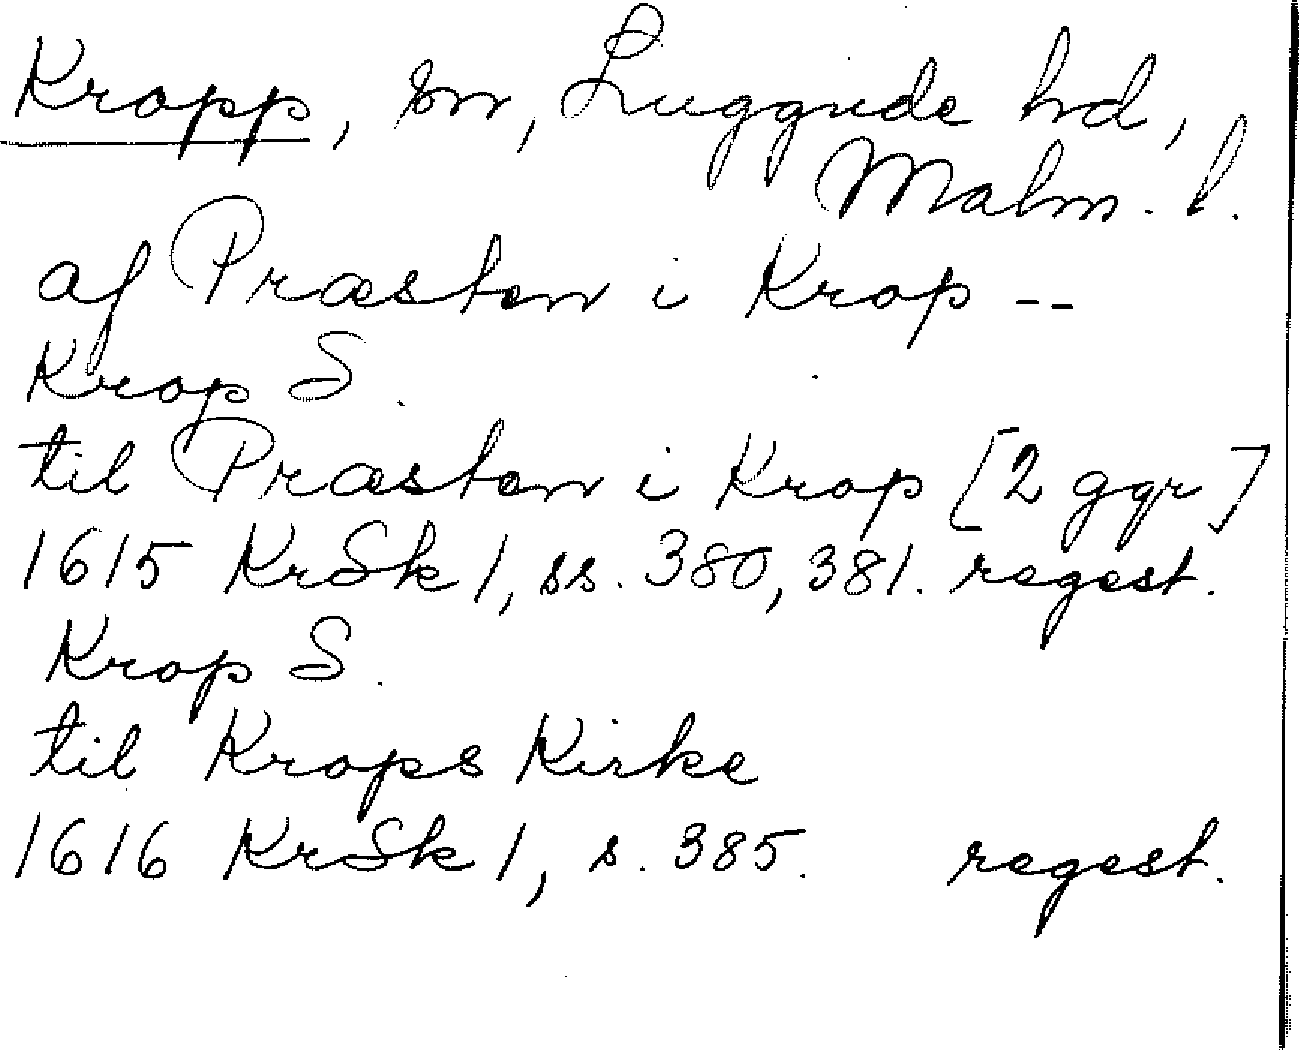 Kropp, sn, Luggude hd,
Malm. l.
af Præsten i Krop --
Krop S.
til Præsten i Krop [2 ggr]
1615 KrSk 1, ss. 380, 381. regest.
Krop S.
til Krops Kirke
1616 KrSk 1, s. 385. regest.